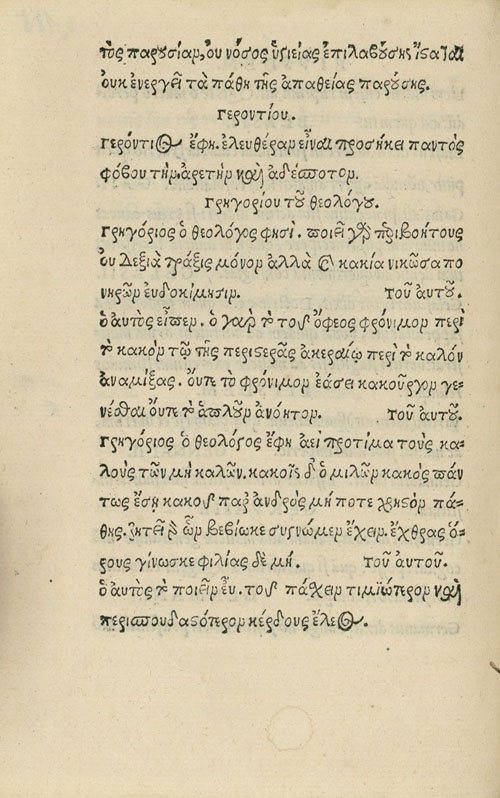 τὸς παρυσίαν, ὀυ νόσος ὑγιείας ἐπιλαβύσης ἵσαται
ὀυκ ἐνεργεῖ τὰ πάθη τῆς ἀπαθείας παρύσης.
γεροντίου.
γερόντιος ἔφη. ἐλευθέραν εἶναι προσήκει παντὸς
φόβου τὴν ἀρετὴν καὶ ἀδέσποτον.
γρηγορίου τοῦ θεολόγου.
γρηγόριος ὁ θεολόγος φησὶ. ποιεῖ γὰρ περιβοήτους
ὀυ δεξιὰ πράξις μόνον ἀλλὰ καὶ κακία νικῶσα πο
νηρῶν ἐυδοκίμησιν. τοῦ αυτοῦ.
ὁ αυτὸς εἶπεν. ὁ γὰρ τὸ τοῦ ὄφεος φρόνιμον περὶ
τὸ κακὸν τῷ τῆς περιστερᾶς ἀκεραίῳ περὶ τὸ καλόν
ἀναμίξας. ὄυτε τὸ φρόνιμον ἐάσει κακοῦργον γε-
νέσθαι ὄυτε τὸ ἁπλοῦν ἀνόητον. τοῦ αυτοῦ.
γρηγόριος ὁ θεολόγος ἔφη ἀεὶ προτίμα τοὺς κα-
λοὺς τῶν μὴ καλῶν. κακοῖς δ' ὁμιλῶν κακὸς πάν
τως ἔση κακοῦ παρ' ἀνδρὸς μή ποτε χρηστὸν πά-
θης. ζητεῖ γὰρ ὧν βεβίωκε συγνώμεν ἔχειν. ἔχθρας ὅ-
ρους γίνωσκε φιλίας δὲ μή. τοῦ αυτοῦ.
ὁ αυτὸς τὸ ποιεῖν εὖ. τοῦ πάχειν τιμιώτερον καὶ
περισπουδαστότερον κέρδους ἔλεος.